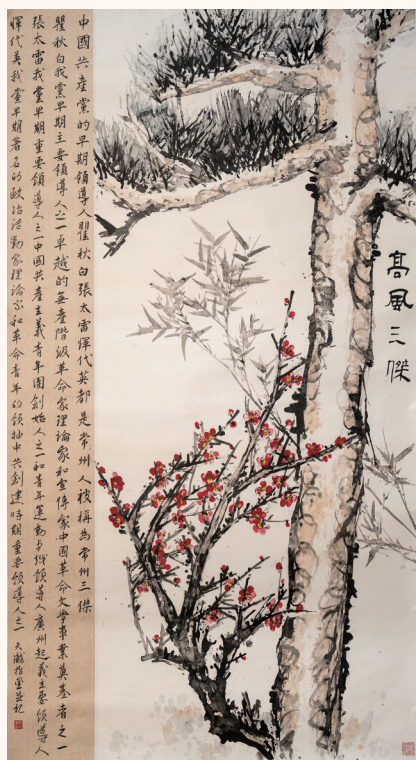 高風三傑
中國共產黨的早期領導人瞿秋白張太雷惲代英都是常州人被稱為常州三傑
瞿秋白我黨早期主要領導人之一卓越的無產階級革命家理論家和宣傳家中國革命文學事業奠基者之一
張太雷我黨早期重要領導人之一中國共產主義青年團創始人之一和青年運動卓越領導人廣州起義主要領導人
惲代英我黨早期著名的政治活動家理論家和革命青年的領袖中共創建時期重要領導人之一 天瀚指墨並記